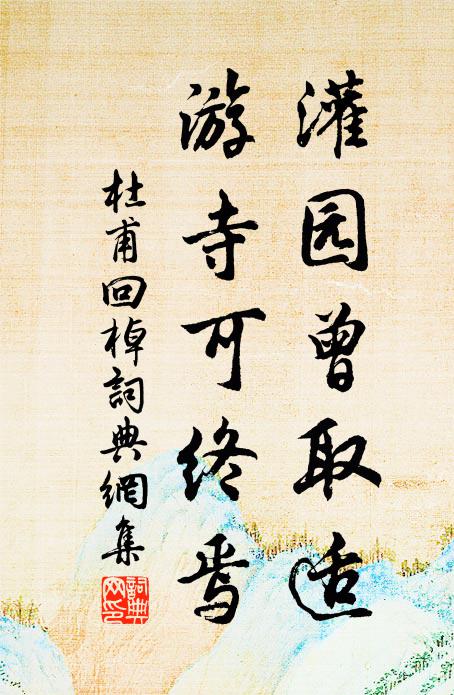 灌园曾取适
游寺可终焉
杜甫回棹詞典網集
詞典網印